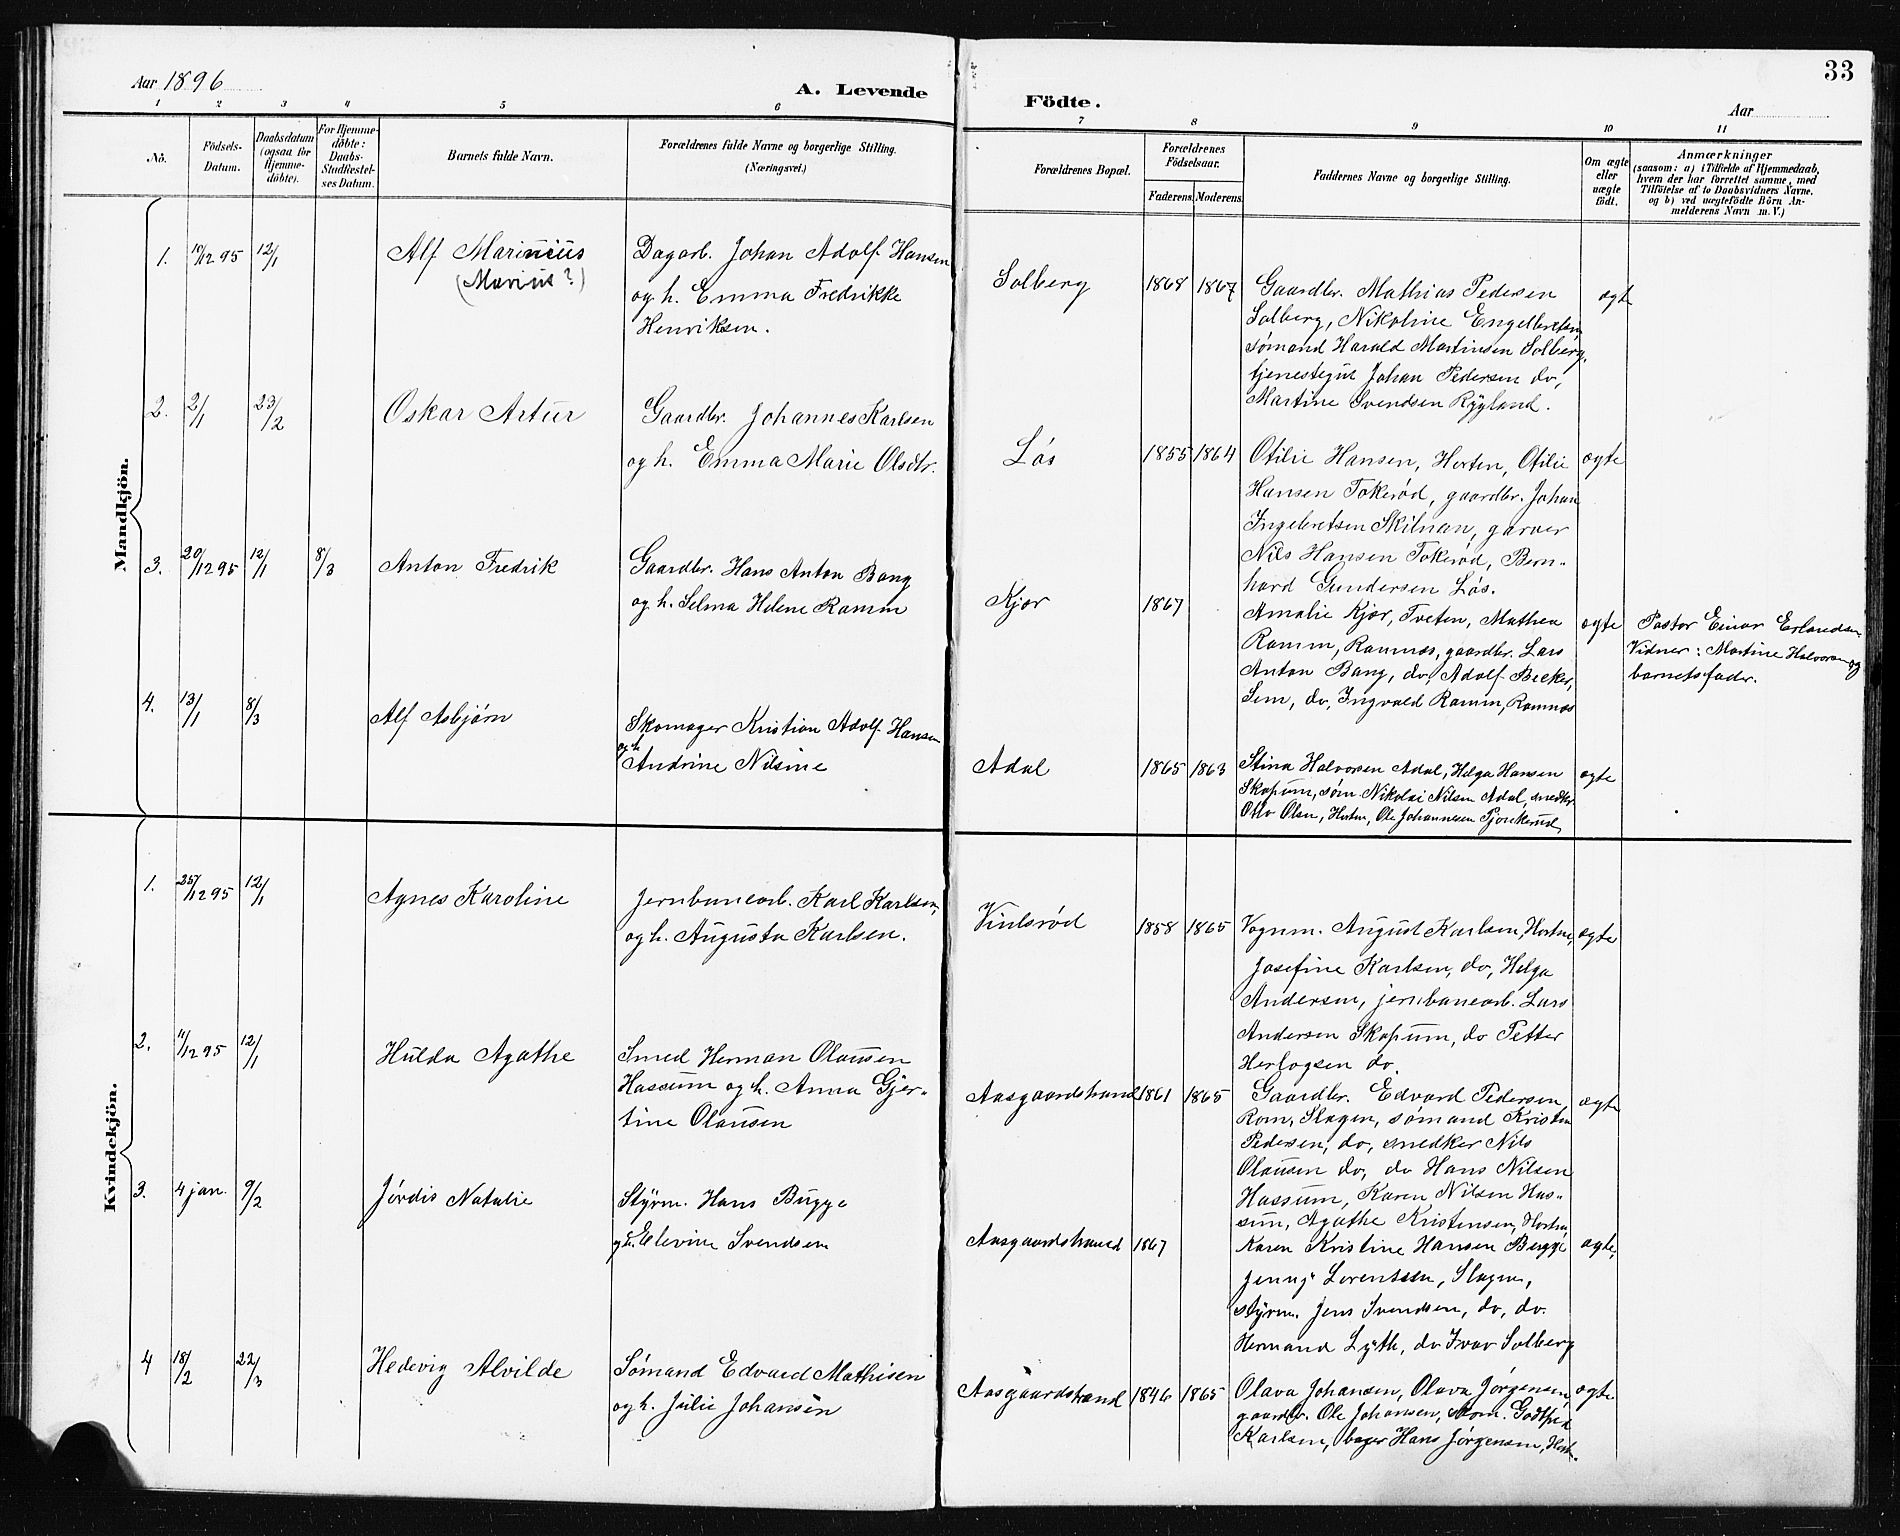 33
Aar 1896
A. Levende
Födte.
Aar
1 2 3 4 5 6 7 8 9 10 11
No.
Födsels-
Datum.
Daabsdatum
(ogsaa for
Hjemme-
döbte).
For Hjemme-
döbte:
Daabs-
Stadfæstel-
ses Datum.
Barnets fulde Navn.
Forældrenes fulde Navne og borgerlige Stilling.
(Næringsvei.)
Forældrenes Bopæl.
Forældrenes
Födselsaar.
Faderens. Moderens.
Faddernes Navne og borgerlige Stilling.
Om ægte
eller
uægte
födt.
Anmærkninger
(saasom: a) i Tilfælde af Hjemmedaab,
hvem der har forrettet samme, med
Tilföielse af to Daabsvidners Navne.
og b) ved uægtefödte Börn An-
melderens Navn m. V.)
Mandkjön.
1. 10/12 95 12/1 Alf Marinius
(Marius?)
Dagarb. Johan Adolf Hansen
og h. Emma Fredrikke
Henriksen.
Solberg 1868 1867
Gaardbr. Mathias Pedersen
Solberg, Nikoline Engelbretsen,
sømand Harald Martinsen Solberg,
tjenestegut Johan Pedersen do,
Martine Svendsen Rygland.
ægte
2. 2/1 23/2 Oskar Artur
Gaardbr. Johannes Karlsen
og h. Emma Marie Olsdtr.
Løs 1855 1864
Otilie Hansen, Horten, Otilie
Hansen Tokerød, gaardbr. Johan
Ingebretsen Skilnan, garver
Nils Hansen Tokerød, Bern-
hard Gundersen Løs.
ægte
3. 20/12 95 12/1 8/3 Anton Fredrik
Gaardbr. Hans Anton Bang
og h. Selma Helene Ramm
Kjær 1867
Amalie Kjær, Tveten, Mathea
Ramm, Ramnæs, gaardbr. Lars
Anton Bang, do, Adolf Becker,
Sem, do, Ingvald Ramm, Ramnæs
ægte
Pastor Einar Erlandsen
Vidner: Martine Halvorsen og
barnets fader.
4. 13/1 8/3 Alf Asbjørn
Skomager Kristian Adolf Hansen
og h.
Andrine Nilsine
Adal 1865 1863
Stina Halvorsen Adal, Helga Hansen
Skopum, søm. Nikolai Nilsen Adal, snedker
Otto Olsen, Horten, Ole Johannesen
ægte
Kvindekjön.
1. 25/12 95 12/1 Agnes Karoline
Jernbanearb. Karl Karlsen,
og h. Augusta Karlsen.
Vinlsrød 1858 1865
Vognm. August Karlsen, Horten,
Josefine Karlsen, do, Helga
Andersen, jernbanearb. Lars
Andersen Skopum, do Petter
Hertogsen do.
ægte
2. 11/12 95 12/1 Hulda Agathe
Smed Herman Olausen
Hassum og h. Anna Gjer-
tine Olausen
Aasgaardstrand 1861 1865
Gaardbr. Edvard Pedersen
Rom, Slagen, sømand Kristen
Pedersen, do, snedker Nils
Olausen do, do Hans Nilsen
Hassum, Karen Nilsen Has-
sum, Agathe Kristensen, Horten
ægte
3. 4 jan. 9/2 Jørdis Natalie
Styrm. Hans Bugge
og h. Elevine Svendsen
Aasgaardstrand 1867
Karen Kristine Hansen Bugge
Jenny Lorentsen, Slagen,
styrm. Jens Svendsen, do, do.
Hermand Lyth, do Ivar Solberg
ægte,
4 18/2 22/3 Hedevig Alvilde
Sømand Edvard Mathisen
og h. Julie Johansen
Aasgaardstrand 1846 1865
Olava Johansen, Olava Jørgensen,
gaardbr. Ole Johansen, Godtfred
Karlsen, bager Hans Jørgensen,
ægte